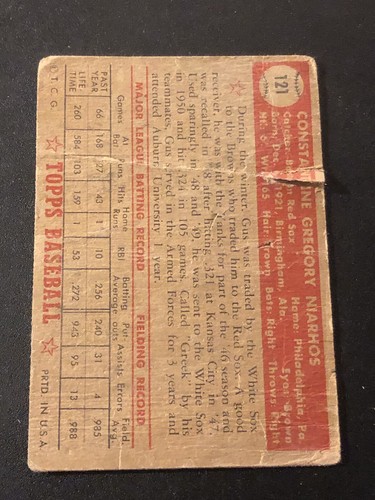 121
CONSTA NE GREGORY NIARHOS
Catcher: Red Sox Home: Philadelphia, Pa.
Born: Dec. 1921, Birmingham, Ala. Eyes: Brown
Ht.: 6' Wt.: 165 Hair: Brown Bats: Right Throws: Right
During the winter Gus was traded by the White Sox
to the Browns who traded him to the Red Sox. A good
receiver, he was with the Yanks for part of the '46 season and
was recalled in '48 after hitting .32 at Kansas City in '47.
Used sparingly in '48 and '49, he was sent to the White Sox
in 1950 and hit .324 in 105 games. Called "Greek" by his
teammates, Gus served in the Armed Forces for 3 years and
attended Auburn University 1 year.
MAJOR LEAGUE BATTING RECORD FIELDING RECORD
Games At Bat Runs Hits Home Runs RBI Batting Average Put outs Assists Errors Field. Avg.
PAST YEAR 66 168 27 43 1 10 .256 240 31 4 .985
LIFE TIME 260 584 103 159 1 53 .272 943 95 13 .988
O.T.C.G. TOPPS BASEBALL PRTD. IN U.S.A.